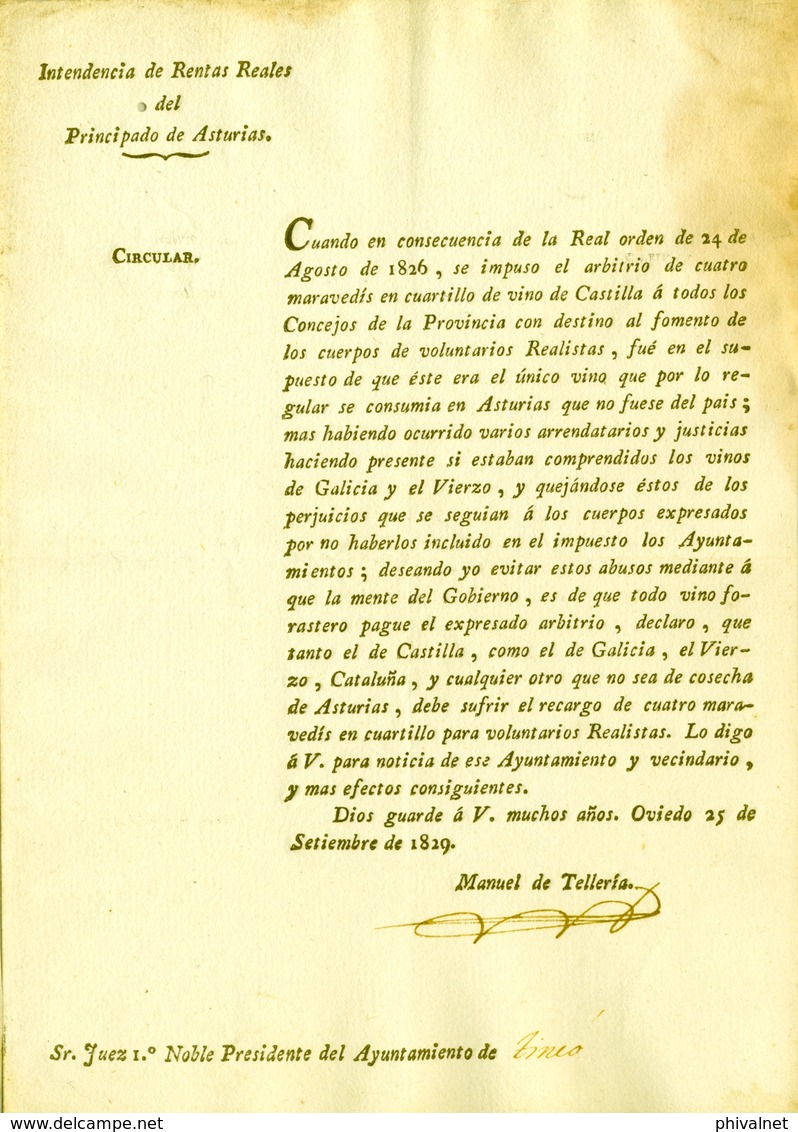 Intendencia de Rentas Reales
del
Principado de Asturias.
CIRCULAR.
Cuando en consecuencia de la Real orden de 24 de
Agosto de 1826, se impuso el arbitrio de cuatro
maravedís en cuartillo de vino de Castilla á todos los
Concejos de la Provincia con destino al fomento de
los cuerpos de voluntarios Realistas, fué en el su-
puesto de que éste era el único vino que por lo re-
gular se consumia en Asturias que no fuese del pais;
mas habiendo ocurrido varios arrendatarios y justicias
haciendo presente si estaban comprendidos los vinos
de Galicia y el Vierzo, y quejándose éstos de los
perjuicios que se seguian á los cuerpos expresados
por no haberlos incluido en el impuesto los Ayunta-
mientos; deseando yo evitar estos abusos mediante á
que la mente del Gobierno, es de que todo vino fo-
rastero pague el expresado arbitrio, declaro, que
tanto el de Castilla, como el de Galicia, el Vier-
zo, Cataluña, y cualquier otro que no sea de cosecha
de Asturias, debe sufrir el recargo de cuatro mara-
vedís en cuartillo para voluntarios Realistas. Lo digo
á V. para noticia de ese Ayuntamiento y vecindario,
y mas efectos consiguientes.
Dios guarde á V. muchos años. Oviedo 25 de
Setiembre de 1829.
Manuel de Tellería.
Sr. Juez 1.º Noble Presidente del Ayuntamiento de Tineó
www.delcampe.net
phivalnet